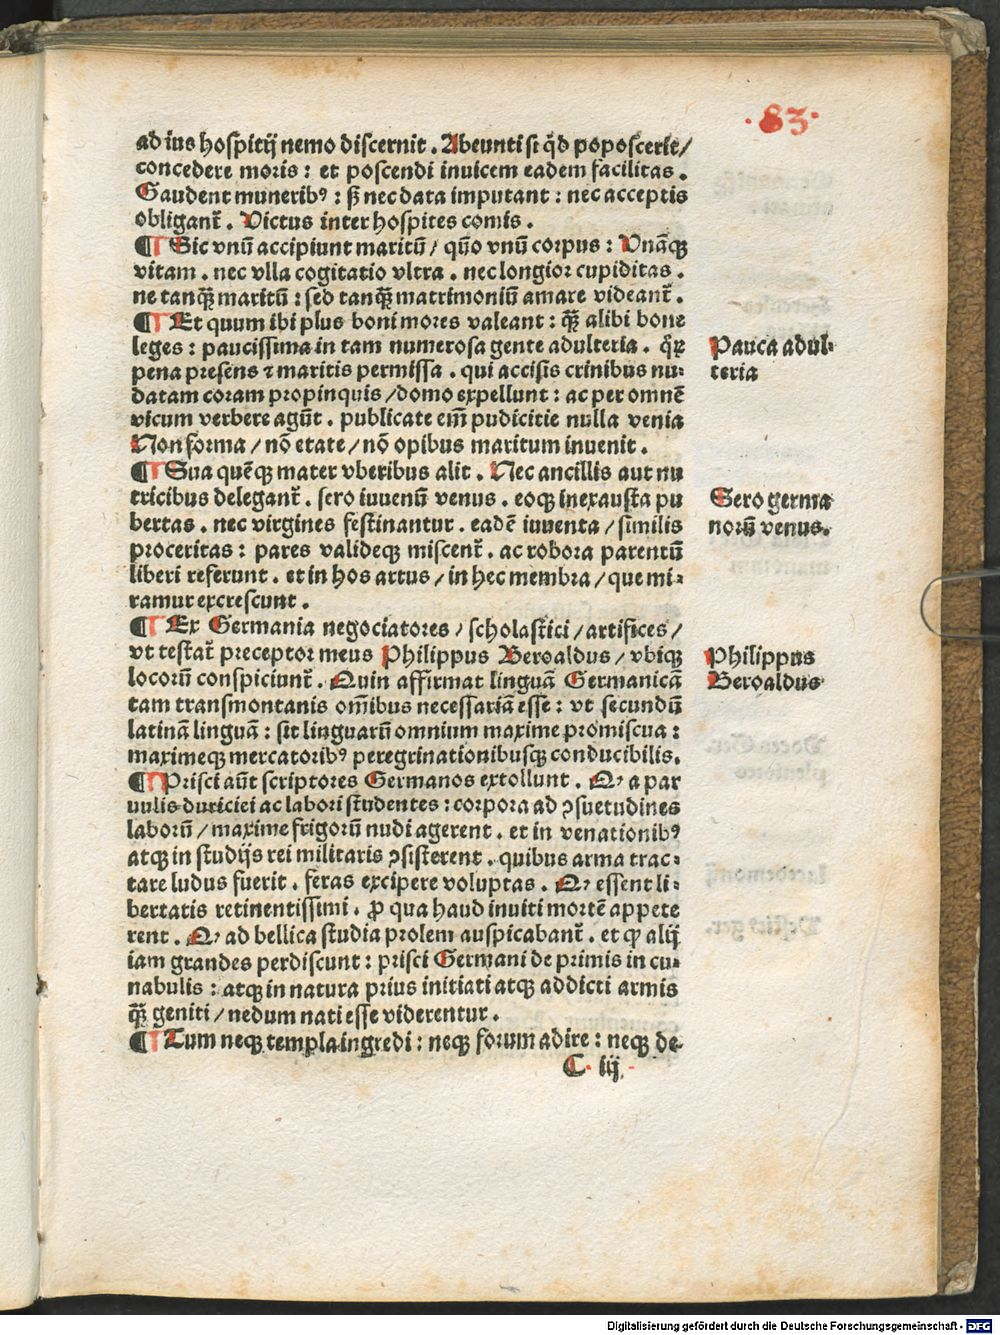 ·83·
ad ius hospitij nemo discernit . Abeunti si qd̄ poposcerit/
concedere moris : et poscendi inuicem eadem facilitas .
Gaudent muneribꝰ : sꝫ nec data imputant : nec acceptis
obligant̄ . Victus inter hospites comis .
¶ Sic vnū accipiunt maritū / quō vnū corpus : Vnāqꝫ
vitam . nec vlla cogitatio vltra . nec longior cupiditas .
ne tanqꝫ̄ maritū : sed tanqꝫ̄ matrimoniū amare videant̄ .
¶ Et quum ibi plus boni mores valeant : qꝫ̄ alibi bone
leges : paucissima in tam numerosa gente adulteria . qꝝ̄
pena presens ⁊ maritis permissa . qui accisis crinibus nu⸗
datam coram propinquis / domo expellunt : ac per omnē
vicum verbere agūt . publicate em̄ pudicitie nulla venia
Non forma / nō etate / nō opibus maritum inuenit .
¶ Sua quēqꝫ mater vberibus alit . Nec ancillis aut nu
tricibus delegant̄ . sero iuuenū venus . eoqꝫ inexausta pu
bertas . nec virgines festinantur . eadē iuuenta / similis
proceritas : pares valideqꝫ miscent̄ . ac robora parentū
liberi referunt . et in hos artus / in hec membra / que mi⸗
ramur excrescunt .
¶ Ex Germania negociatores / scholastici / artifices /
vt testat̄ preceptor meus Philippus Beroaldus / vbiqꝫ
locorū conspiciunt̄ . Quin affirmat linguā Germanicā
tam transmontanis om̄ibus necessariā esse : vt secundū
latinā linguā : sit linguarū omnium maxime promiscua :
maximeqꝫ mercatoribꝰ peregrinationibusqꝫ conducibilis .
¶ Prisci aūt scriptores Germanos extollunt . Qꝫ a par
uulis duriciei ac labori studentes : corpora ad ꝯsuetudines
laborū / maxime frigorū nudi agerent . et in venationibꝰ
atqꝫ in studijs rei militaris ꝯsisterent . quibus arma trac⸗
tare ludus fuerit . feras excipere voluptas . Qꝫ essent li⸗
bertatis retinentissimi . ꝓ qua haud inuiti mortē appete
rent . Qꝫ ad bellica studia prolem auspicabant̄ . et qꝫ alij
iam grandes perdiscunt : prisci Germani de primis in cu⸗
nabulis : atqꝫ in natura prius initiati atqꝫ addicti armis
qꝫ̄ geniti / nedum nati esse viderentur .
¶ Tum neqꝫ templa ingredi : neqꝫ forum adire : neqꝫ de⸗
C iij
Pauca adul⸗
teria
Sero germa
norū venus.
Philippus
Beroaldus
Digitalisierung gefördert durch die Deutsche Forschungsgemeinschaft - DFG